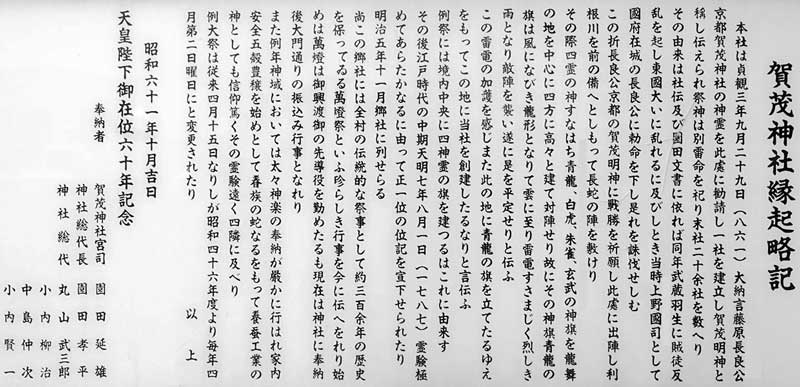 賀茂神社縁起略記
本社は貞観三年九月二十九日（八六一）大納言藤原長良公
京都賀茂神社の神霊を此處に勧請し一社を建立し賀茂明神と
稱し伝えられ祭神は別雷命を祀り末社二十余社を数へり
その由来は社伝及び園田文書に依れば同年武蔵羽生に賊徒反
乱を起し東國大いに乱れるに及びしとき当時上野國司として
國府在城の長良公に勅命を下し是れを誅伐せしむ
この折長良公京都の賀茂明神に戦勝を祈願し此處に出陣し利
根川を前の備へとしもって長蛇の陣を敷けり
その際四霊の神すなはち青龍、白虎、朱雀、玄武の神旗を龍舞
の地を中心に四方に高々と建て対陣せり故にその神旗青龍の
旗は風になびき龍形となりて雲に至り雷電すさましく烈しき
雨となり敵陣を襲い遂に足を平定せりと伝ふ
この雷電の加護を感じまた此の地に青龍の旗を立てたるゆえ
をもってこの地に当社を創建したるなりと言伝ふ
例祭には境内中央に四神霊の旗を建つるはこれに由来す
その後江戸時代の中期天明七年八月一日（一七八七）霊験極
めてあらたかなるに由って正一位の位記を宣下せられたり
明治五年十一月郷社に列せらる
尚この郷社には全村の伝統的な祭事として約三百余年の歴史
を保ってゐる萬燈祭といふ珍らしき行事を今に伝へをれり始
めは萬燈は御輿渡御の先導役を勤めたるも現在は神社に奉納
後大門通りの振込み行事となれり
また例年神域においては太々神楽の奉納が厳かに行はれ家内
安全五穀豊穣を始めとして眷族の蛇なるをもって養蚕工業の
神としても信仰篤くその霊験遠く四隣に及べり
例大祭は従来四月十五日なりしが昭和四十六年度より毎年四
月第二日曜日にと変更されたり
以上
昭和六十一年十月吉日
天皇陛下御在位六十年記念
奉納者
賀茂神社宮司 園田延雄
神社総代長 園田孝平
神社総代 丸山武三郎
小内柳治
中島仲次
小内賢一